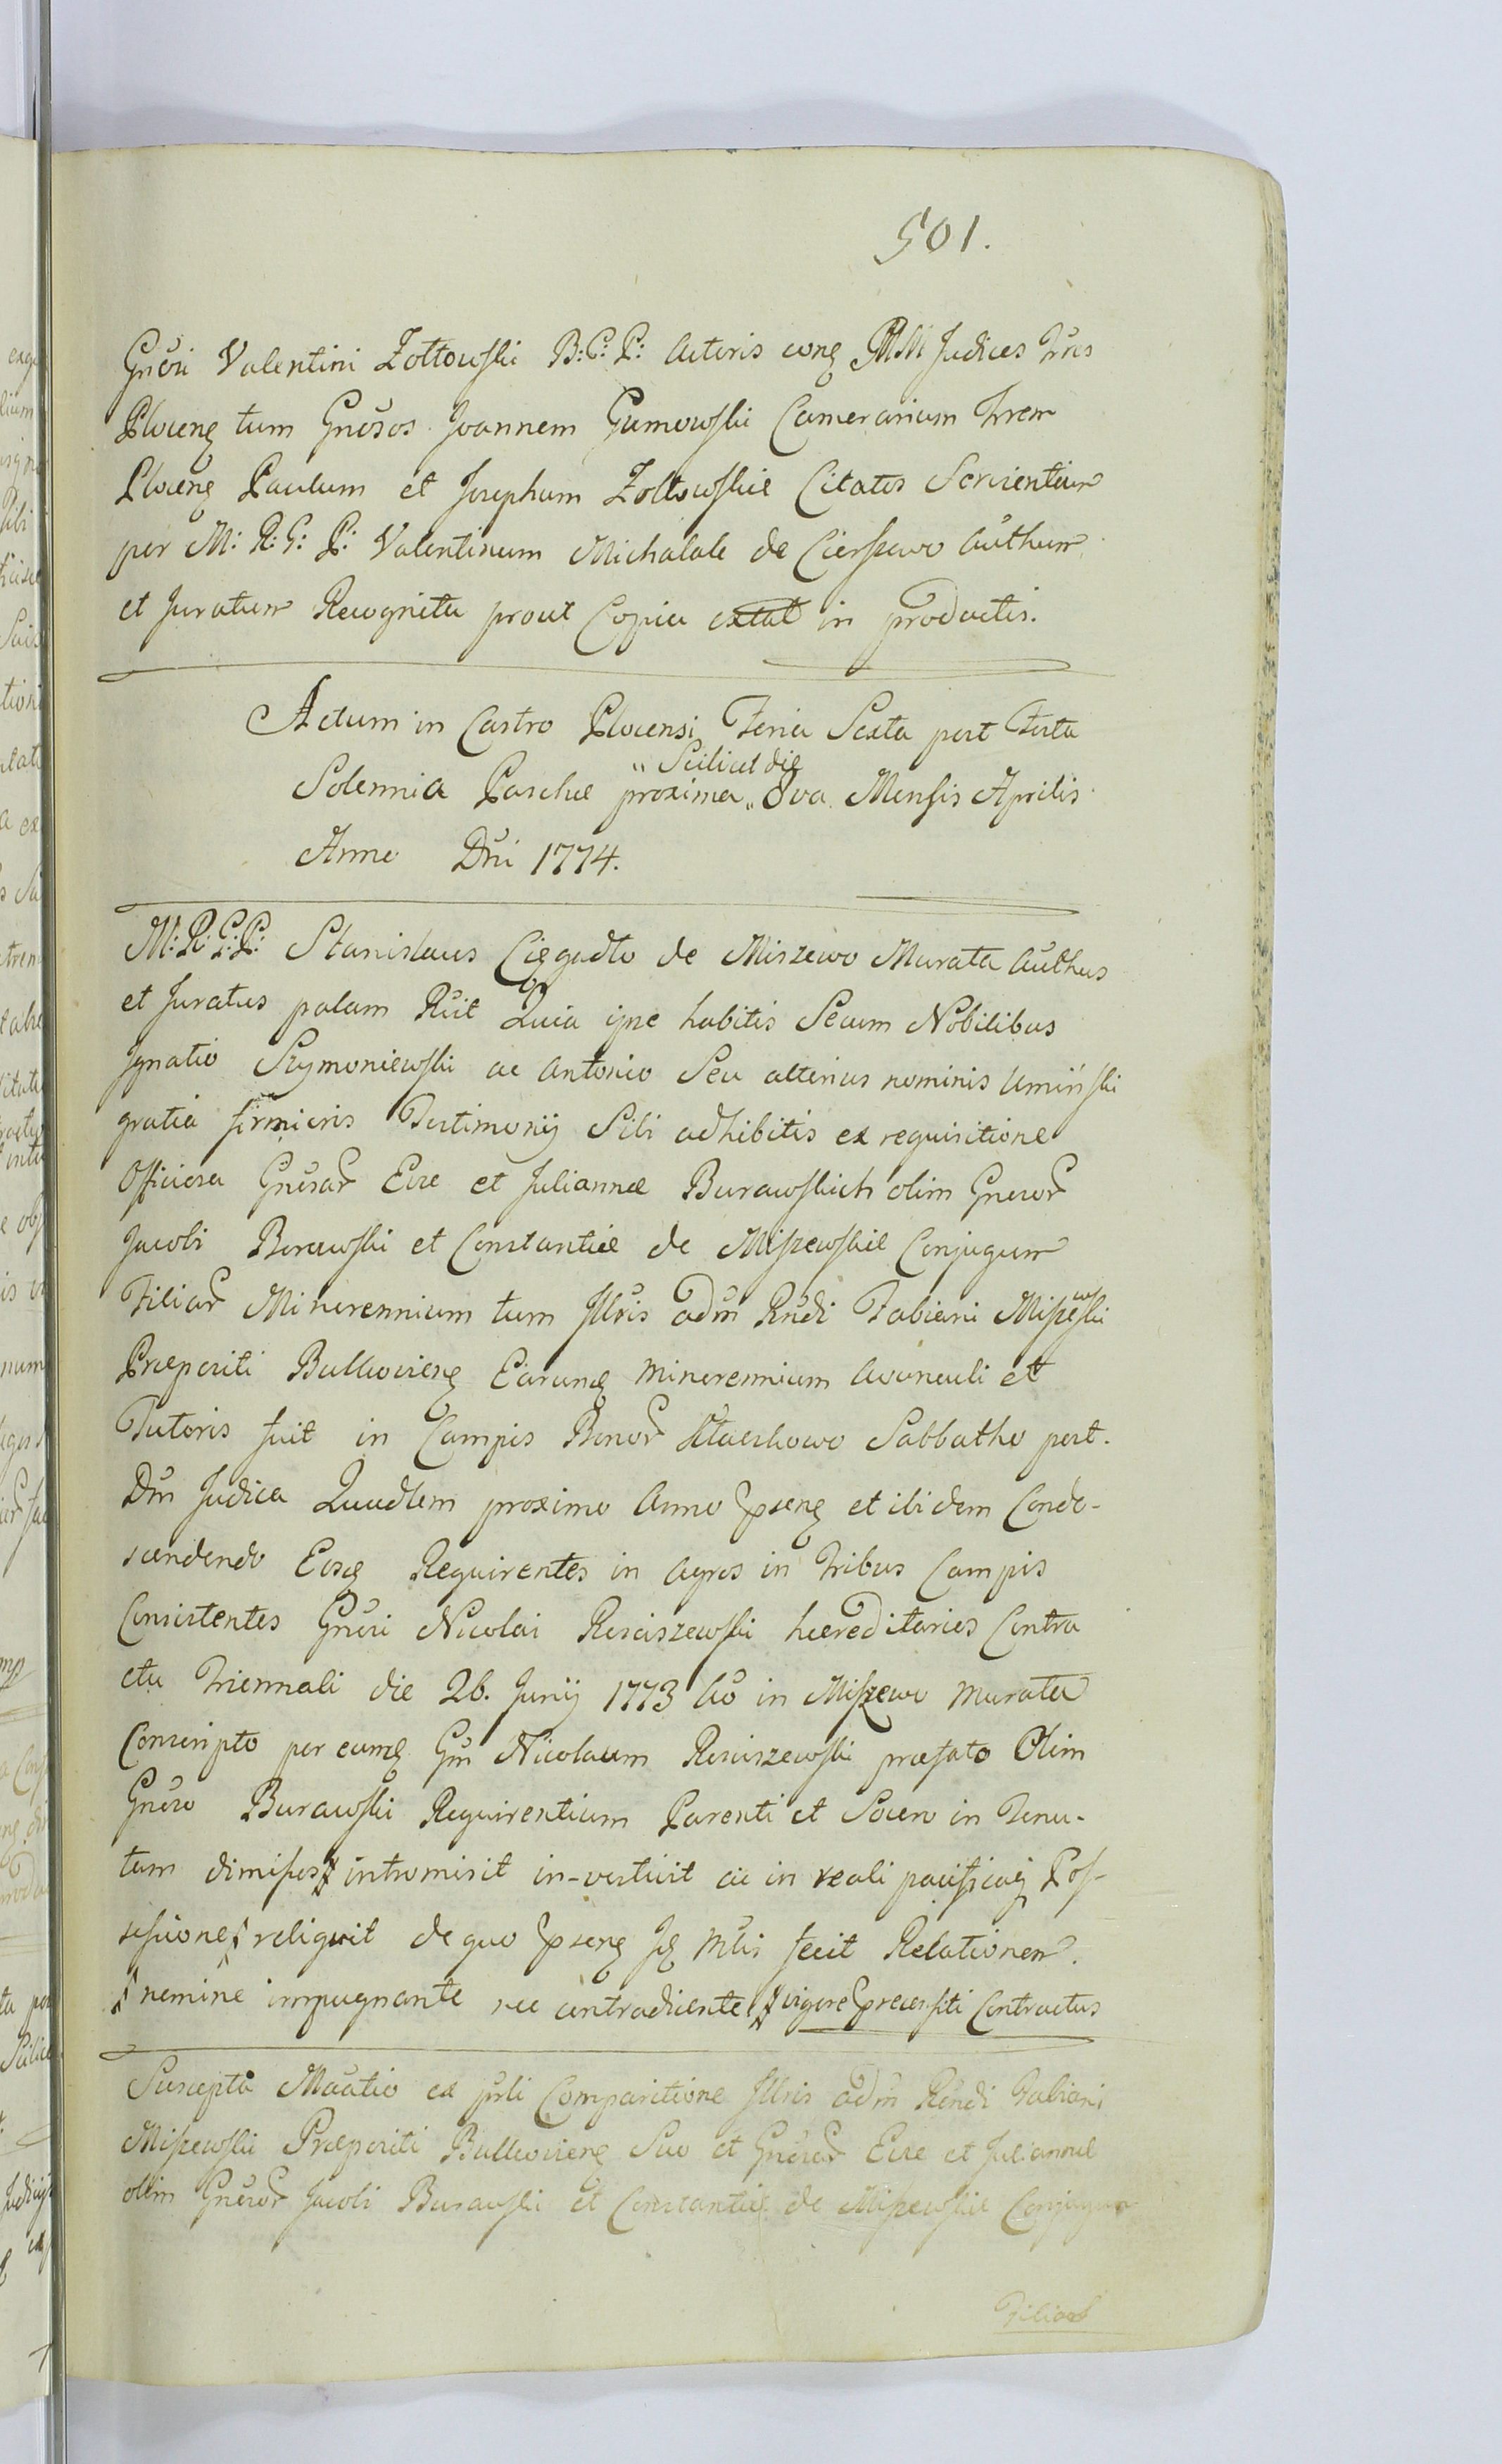 501.
Gnõsi Valentini Zołtowski B: C: P: Actoris conq MM Judices Trres
Plocenq tum Gnõsos Joannem Gumowski Camerarium Trrem
Plocenq Paulum et Josephum Zołtowskie Citatos Servientem
per M: R: G: P: Valentinum Michalak de Cierszewo Authum
et Juratum Recognita prout Copia extat in productis.
Actum in Castro Plocensi Feria Sexta post Festa
Solennia Paschæ proxima „ Scilicet die „ 8va Mensis Aprilis
Anno Dni 1774.
M: R: G: P: Stanislaus Cięgadło de Miszewo Murata Authus
et Juratus palam Rcit Quia ipse habitis Secum Nobilibus
Ignatio Szymoniewski ac Antonio Seu alterius nominis Umiński
gratia firmioris Testimonij Sibi adhibitis ex requisitione
Officiosa Gnõsar Evæ et Juliannæ Burawskich olim Gnõsor
Jacobi Borawski et Constantiæ de Miszewskie Conjugum
Filiar Minorennium tum Illris adm Rndi Fabiani Miszewski
Præpositi Bulkoviensq Earumq minorennium Avunculi et
Tutoris fuit in Campis Bonor Sabbatho post
Dm Judica Quadlem proximo Anno pnsenq et ibidem Conde-
scendendo Eosq Requirentes in Agros in Tribus Campis
Consistentes Gnõsi Nicolai Rosciszewski hæreditarios Contra
ctu Triennali die 26. Junij 1773 Ao in Miszewo Murata
Conscripto per eumq Gm Nicolaum Rosciszewski præfato Olim
Gnõso Burawski Requirentium Parenti et Socero in Tenu-
tam dimissos intromisit in-vestivit ac in reali pacificaq Pos-
sessione reliquit de quo pnsenq Jq Mtis fecit Relationem.
nemine impugnante nec contradicente vigore præcensiti Contractus
Suscepta Mãnatio ex psnli Comparitione Illris adm Rendi Fabiani
Miszewski Præpositi Bulkoviensq Suo et Gnõsar Evæ et Juliannæ
olim Gnõsor Jacobi Burawski et Constantiæ de Miszewskie Conjugum
Filiar